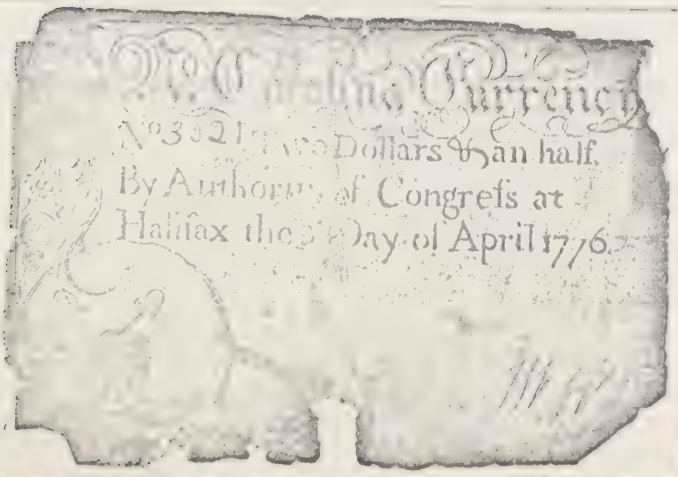 Carolina Currency
No 3021 Two Dollars & an half.
By Authority of Congreſs at
Halifax the Day of April 1776.